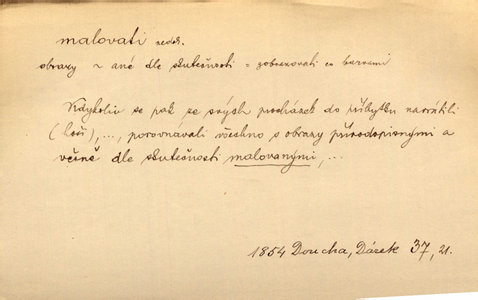 malovati nedok.
obrazy ~ané dle skutečnosti = zobrazovati co barvami
Kdykoliv se pak ze svých procházek do příbytku navrátili
(hoši), ..., porovnávali všechno s obrazy přírodopisnými a
věrně dle skutečnosti malovanými, ...
1854 Doucha, Dárek 37, 21.